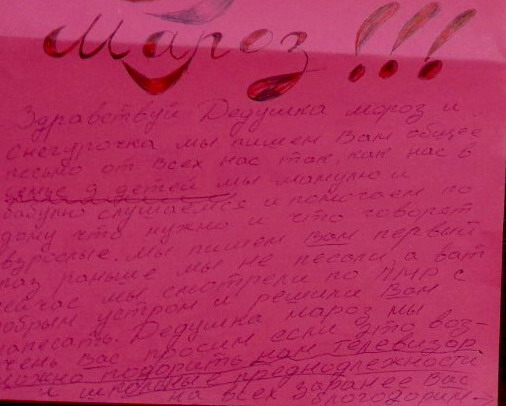 Мароз!!!
Здравствуй Дедушка мороз и
снегурочка мы пишем Вам общее
письмо от всех нас так, как нас в
семье 9 детей мы мамулю и
бабулю слушаемся и помогаем по
дому что нужно и что говорят
взрослые. Мы пишем Вам первый
раз раньше мы не песали, а вот
сейчас мы смотрели по ПМР с
добрым утром и решили Вам
написать. Дедушка мороз мы
очень Вас просим если это воз-
можно подорить нам телевизор
и школьные преднодлежности
на всех заранее Вас
благодорим